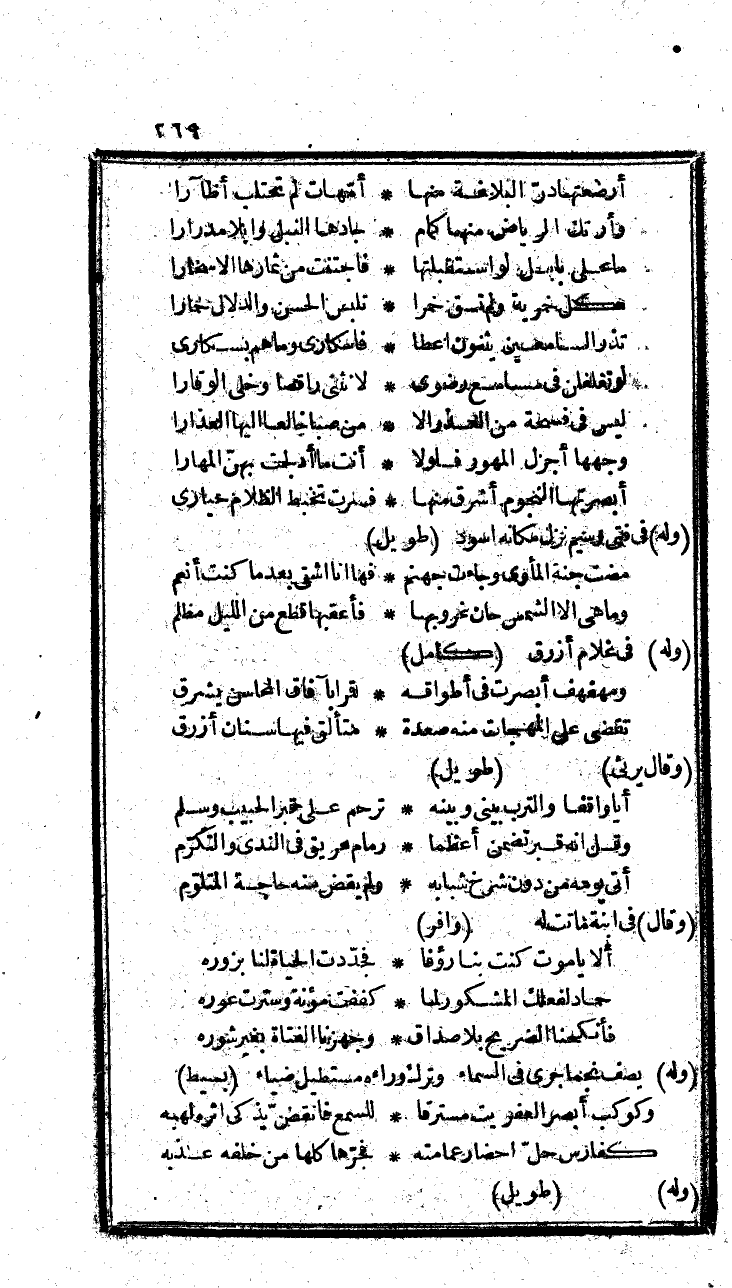 ٢٦٩
أرضعتها درّ البلاغة منها * أمّهات لم تحتلب أظآرا
وأرتك الرياض منها كمام * جادها النيل وابلا مدرارا
ما على بابل لو استقبلتها * فاجتنت من ثمارها الاسحارا
كل خمرية ولم تسق خمرا * تلبس الحسن والدلال خمارا
تذر السامعين يثنون اعطا * فا سكارى وما هم بسكارى
لو تغلغلن فى مسامع رضوى * لانثنى راقصا وخلى الوقارا
ليس فى فسحة من العذر الا * من صبا خالعا اليها العذارا
وجهها أجزل المهور فلولا * أنت ما أدلجت بهنّ المهارا
أبصرتها النجوم أشرق منها * فسرت تخبط الظلام حيارى
(وله) فى فتى وسيم نزل مكانه اسود (طويل)
مضت جنة المأوى وجاءت جهنم * فها انا اشقى بعد ما كنت أنعم
وما هى الا الشمس حان غروبها * فأعقبها قطع من الليل مظلم
(وله) فى غلام أزرق (كامل)
ومهفهف أبصرت فى أطواقه * قرابآ فاق المحاسن يشرق
تقضى على المهجات منه صعدة * متألق فيها سنان أزرق
(وقال يرثى) (طويل)
أيا واقفا والترب بينى وبينه * ترحم على قبر الحبيب وسلم
وقل انه قبر تضمن أعظما * رمام عريق فى الندى والتكرّم
أتى يومه من دون شرخ شبابه * ولم يقض منه حاجة المتلوّم
(وقال) فى ابنة ماتت له (وافر)
ألا يا موت كنت بنا رؤفا * فجدّدت الحياة لنا بزوره
حماد لفعلك المشكور لما * كففت مؤنة وسترت عوره
فأنكحنا الضريح بلا صداق * وجهزنا الفتاة بغير شوره
(وله) يصف نجما جرى فى السماء وترك وراءه مستطيل ضياء (بسيط)
وكوكب أبصر العفريت مسترقا * للسمع فانقض يذكى اثره لهبه
كفارس حلّ احضار عمامته * فجرّها كلها من خلفه عذبه
(وله) (طويل)